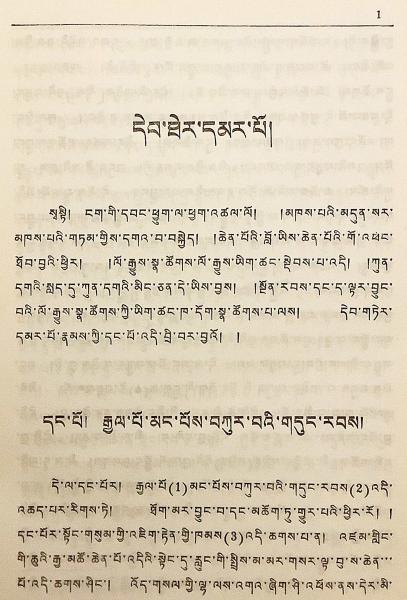 1
དེབ་ཐེར་དམར་པོ།
སྭསྟི། ངག་གི་དབང་ཕྱུག་ལ་ཕྱག་འཚལ་ལོ། །མཁས་པའི་མདུན་སར་
མཁས་པའི་གཏམ་གྱིས་དགའ་བ་བསྐྱེད། །ཆེན་པོའི་བློ་ཡིས་ཆེན་པོའི་གོ་འཕང་
ཐོབ་བྱའི་ཕྱིར། །ལོ་རྒྱུས་སྣ་ཚོགས་ལོ་རྒྱུས་ཡིག་ཚང་སྡེབས་པ་འདི། །ཀུན་
དགའི་སླད་དུ་ཀུན་དགའི་མིང་ཅན་དེ་ཡིས་བྱས། །སྔོན་རབས་དང་ད་ལྟར་བྱུང་
བའི་ལོ་རྒྱུས་སྣ་ཚོགས་ཀྱི་ཡིག་ཚང་ཁ་དོག་སྣ་ཚོགས་པ་ལས། དེབ་གཏེར་
དམར་པོ་རྣམས་ཀྱི་དང་པོ་འདི་བྲི་བར་བྱའོ། །
དང་པོ། རྒྱལ་པོ་མང་པོས་བཀུར་བའི་གདུང་རབས།
དེ་ལ་དང་པོར། རྒྱལ་པོ(1)མང་པོས་བཀུར་བའི་གདུང་རབས(2)འདི་
འཆད་པར་རིགས་ཏེ། ཐོག་མར་བྱུང་བ་དང་མཆོག་ཏུ་གྱུར་པའི་ཕྱིར་རོ། །
དང་པོར་སྟོང་གསུམ་གྱི་འཇིག་རྟེན་གྱི་ཁམས(3)འདི་ཆགས་པ་ན། འཛམ་གླིང་
གི་ཆུའི་རྒྱ་མཚོ་ཆེན་པོ་འདིའི་སྟེང་དུ་རླུང་གི་སྤྲིས་མ་མར་གསར་ལྟ་བུ་ས་ཆེན་…
པོ་འདི་ཆགས་ཤིང་། འོད་གསལ་གྱི་ལྷ་ལས་འགའ་ཞིག་ཤི་འཕོས་ནས་དེར་མི་